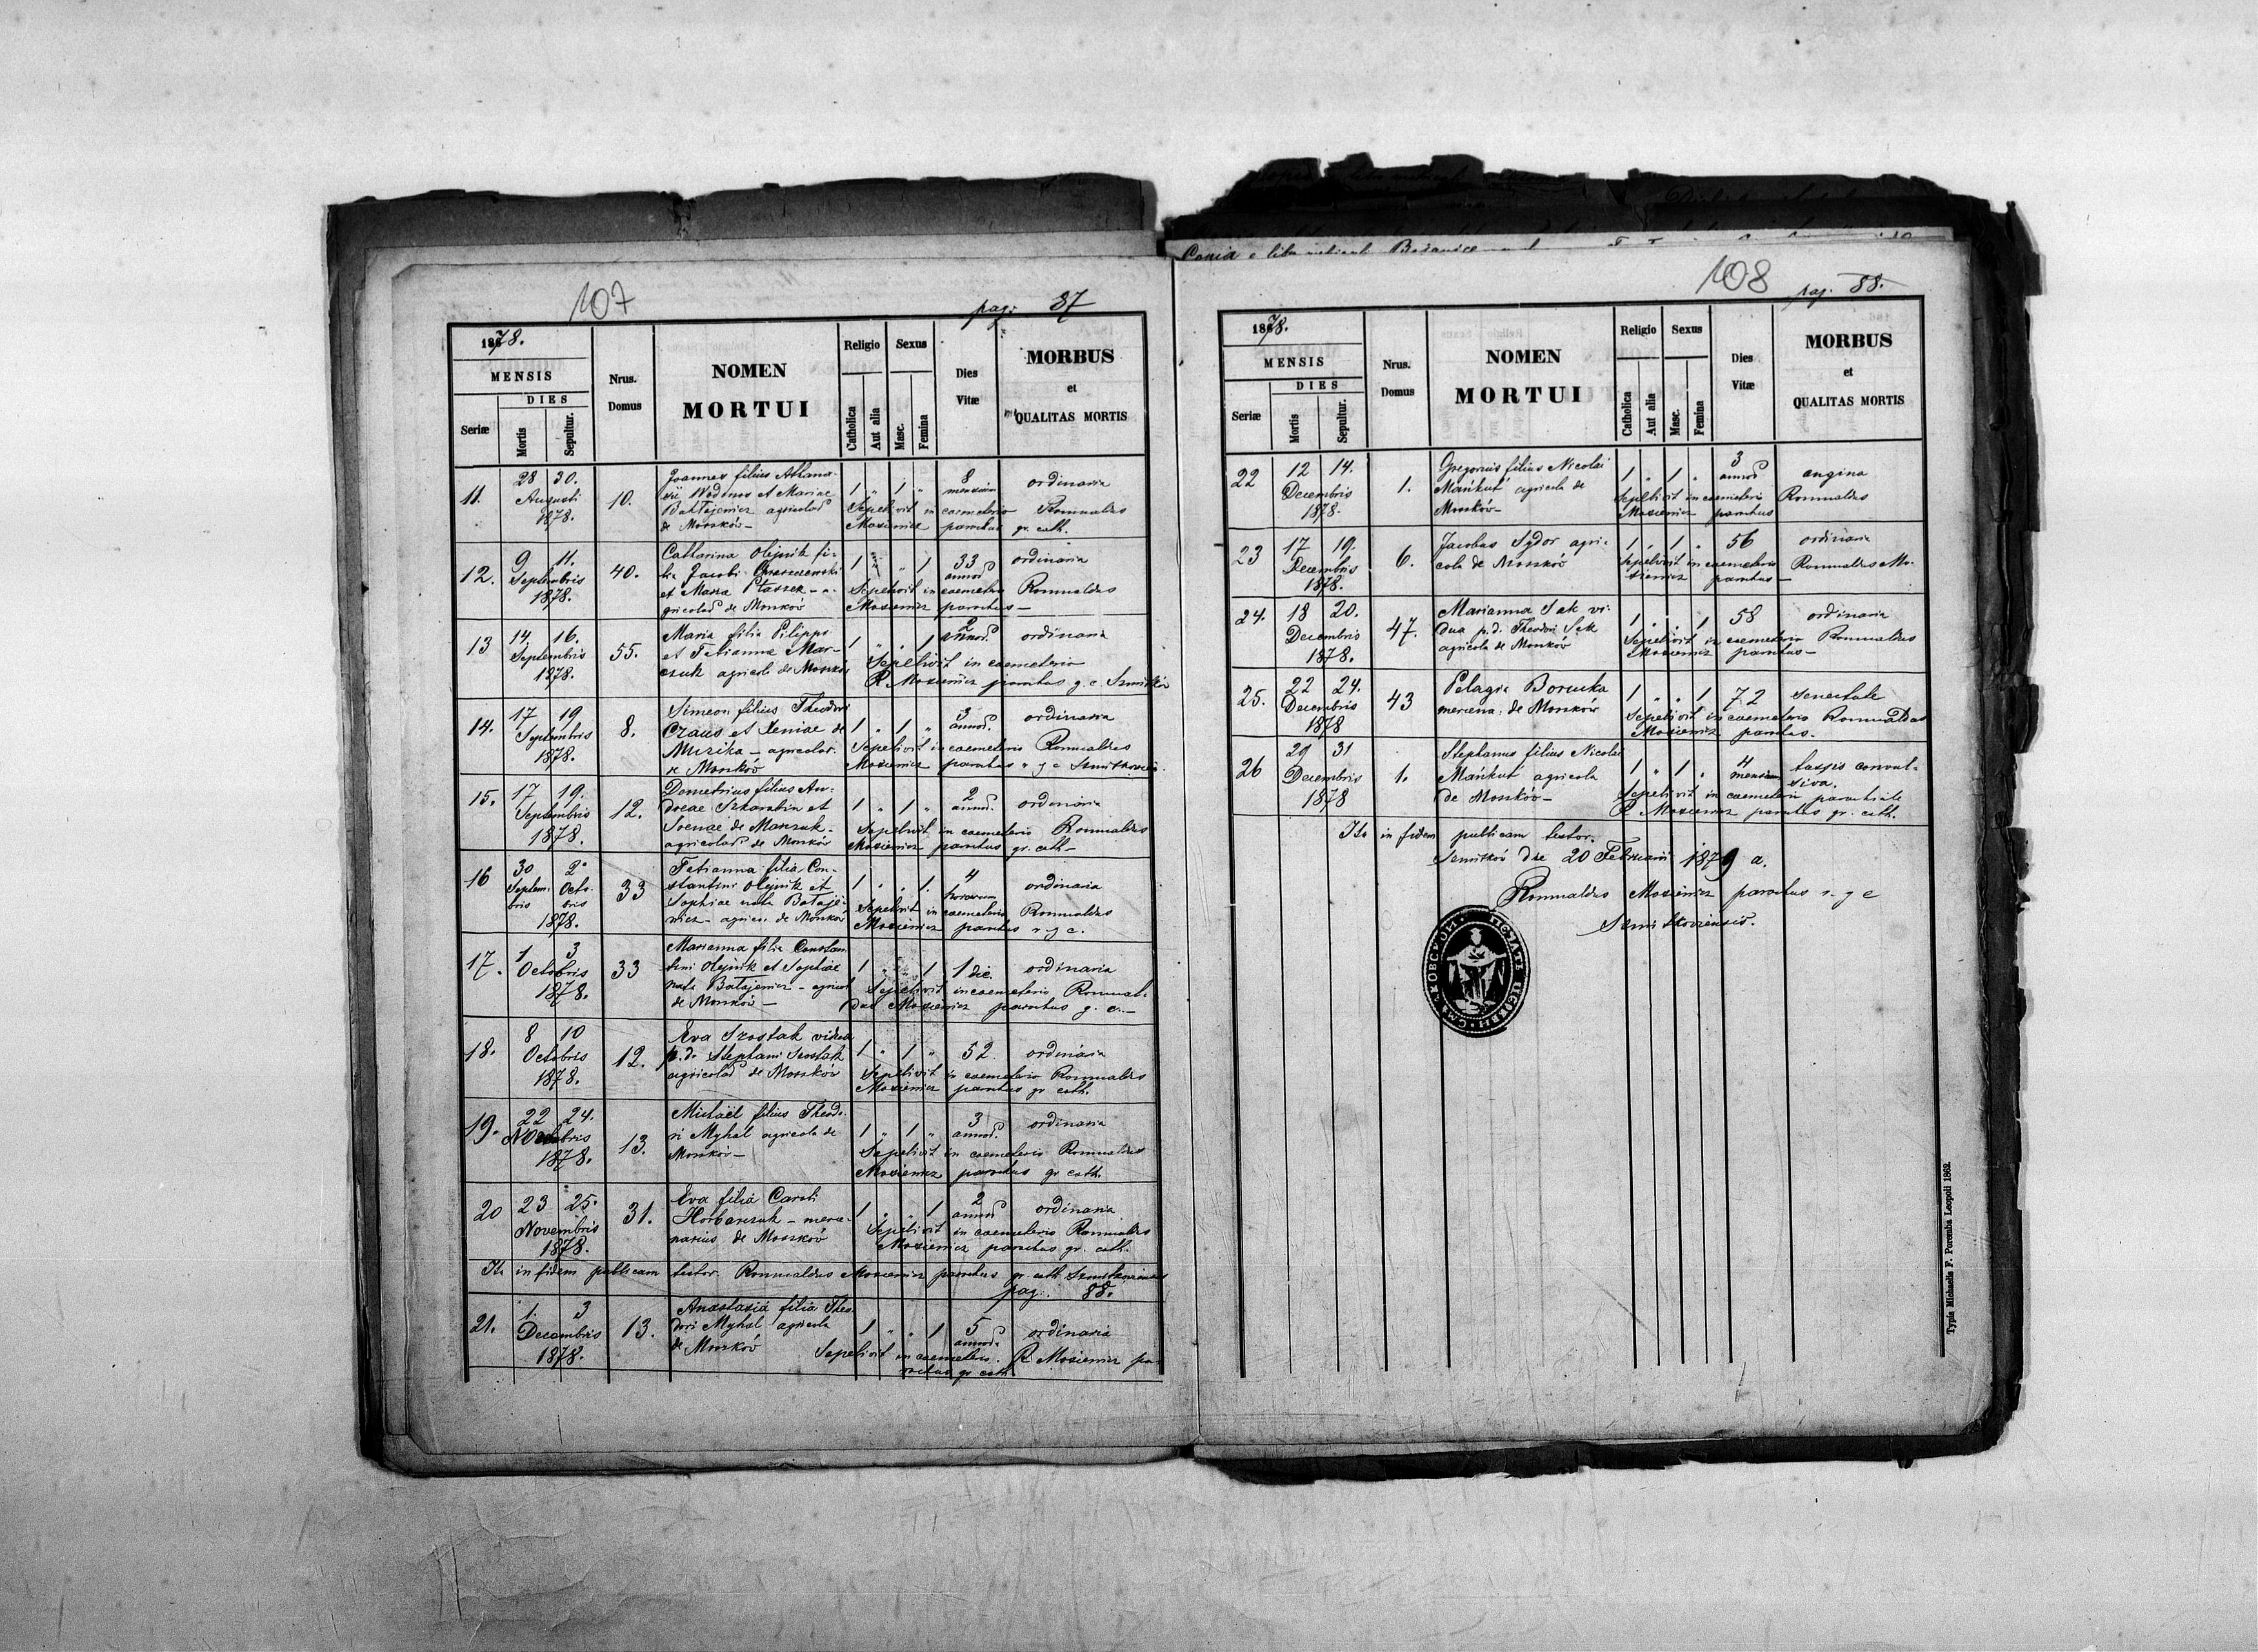 107
pag: 87
1878.
MENSIS
DIES
Seriæ
Mortis
Sepultur.
Nrus.
Domus
NOMEN
MORTUI
Religio
Catholica
Aut alia
Sexus
Masc.
Femina
Dies
Vitæ
MORBUS
et
QUALITAS MORTIS
11. 28 30. Augusti 1878. 10.
Joannes filius Athana-
sii et Mariae
agricola
de Moszków –
1 " 1 " 8 mensium ordinaria
Sepelivit in coemeterio Romualdus
Mosiewicz parochus gr. cath.
12. 9 11. Septembris 1878. 40.
Catharina Olejnik fi-
lia Jacobi
et Maria – a-
gricola de Moszków
1 " " 1 33 annor. ordinaria
Sepelivit in coemeterio Romualdus
Mosiewicz parochus –
13 14. 16. Septembris 1878. 55.
Maria filia Philippi
et Tetianna Mar-
czuk agricola de Moszków
1 " " 1 2 annor. ordinaria
Sepelivit in coemeterio
R Mosiewicz parochus g. c.
14. 17 19 Septembris 1878. 8.
Simeon filius Theodori
et Xeniae de
Muzika – agricolar.
de Moszków
1 " 1 " 3 annor. ordinaria
Sepelivit in coemeterio Romualdus
Mosiewicz parochus r g c
15. 17 19. Septembris 1878. 12.
Demetrius filius An-
dreae et
de Marczuk –
agricola de Moszków
1 " 1 " 2 annor. ordinaria
Sepelivit in coemeterio Romualdus
Mosiewicz parochus gr. cath –
16 30 Septem-bris 2 Octo-bris 1878. 33
Tetianna filia Con-
stantini Olejnik et
Sophiae nata Bataje-
wicz – agricol. de Moszków
1 " " 1. 4 horarum ordinaria
Sepelivit in coemeterio Romualdus
Mosiewicz parochus r g c.
17. 1 3 Octobris 1878. 33
Marianna filia Constan-
tini Olejnik et Sophiae
nata Batajewicz – agricol.
de Moszków –
1 " " 1 1 die. ordinaria
Sepelivit in coemeterio Romual-
dus Mosiewicz parochus g. c. –
18. 8 10 Octobris 1878. 12.
Eva Szostak vidua
p. d. Stephani Szostak
agricola de Moszków
1 " 1 " 52 ordinaria
Sepelivit in coemeterio Romualdus
Mosiewicz parochus gr cath.
19. 22 24. 1878. 13.
Michaël filius Theodo-
ri Myhal agricola de
Moszków –
1 " 1 " 3 annor. ordinaria
Sepelivit in coemeterio Romualdus
Mosiewicz parochus gr cath.
20 23 25. Novembris 1878. 31.
Eva filia Caroli
Horbaczuk – merce-
narius de Moszków
1 " " 1 2 annor ordinaria
Sepelivit in coemeterio Romualdus
Mosiewicz parochus gr. cath.
Ita in fidem publicam testor. Romualdus Mosiewicz parochus gr. cath
pag. 88.
21. 1. 3 Decembris 1878. 13.
Anastasia filia Theo-
dori Myhal agricola
de Moszków
1 " " 1 5 annor. ordinaria
Sepelivit in coemeterio. R Mosiewicz pa-
rochus gr cath.
108
pag. 88.
1878.
MENSIS
DIES
Seriæ
Mortis
Sepultur.
Nrus.
Domus
NOMEN
MORTUI
Religio
Catholica
Aut alia
Sexus
Masc.
Femina
Dies
Vitæ
MORBUS
et
QUALITAS MORTIS
22 12 14. Decembris 1878. 1.
Gregorius filius Nicolai
Mańkut agricola de
Moszków –
1 " 1 " 3 annor angina
Sepelivit in coemeterio Romualdus
Mosiewicz parochus
23 17 19. Decembris 1878. 6.
Jacobus Sydor agri-
cola de Moszków
1 " 1 " 56 ordinaria
Sepelivit in coemeterio Romualdus Mo-
siewicz parochus –
24. 18 20. Decembris 1878. 47.
Marianna Sak vi-
dua p. d. Theodori Sak
agricola de Moszków
1 " " 1 58 ordinaria
Sepelivit in coemeterio Romualdus
Mosiewicz parochus –
25. 22 24. Decembris 1878 43
Pelagia Borucka
mercena: de Moszków
1 " " 1 72 senectute
Sepelivit in coemeterio Romualdus
Mosiewicz parochus.
26 29 31 Decembris 1878 1.
Stephanus filius Nicolai
Mańkut agricola
de Moszków –
1 " 1 " 4 mensium tussis convul-
siva.
Sepelivit in coemeterio parochiale
R Mosiewicz parochus gr. cath.
Ita in fidem publicam testor.
Szmitków die 20 Februarii 1879 a.
Romualdus Mosiewicz parochus r. g c
Szmitkoviensis.
Typis Michaelis F. Poremba Leopoli 1862.